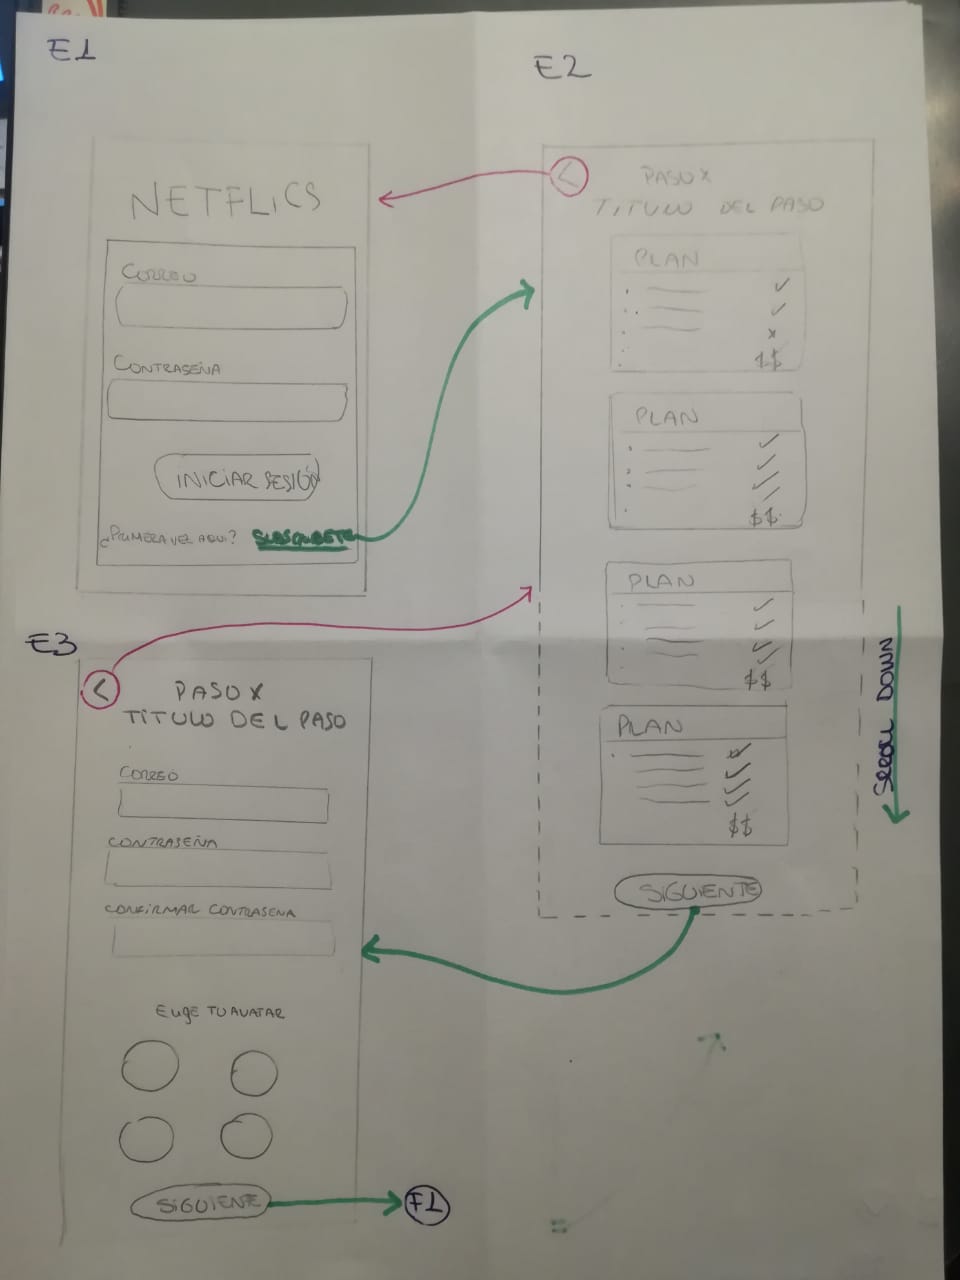 E1
NETFLICS
CORREO
CONTRASEÑA
INICIAR SESIÓN
¿PRIMERA VEZ AQUI? SUSCRIBETE
E2
<
PASO X
TITULO DEL PASO
PLAN
$$
PLAN
$$
PLAN
$$
PLAN
$$
SIGUIENTE
SCROLL DOWN
E3
<
PASO X
TITULO DEL PASO
CORREO
CONTRASEÑA
CONFIRMAR CONTRASENA
ELIGE TU AVATAR
SIGUIENTE
F1